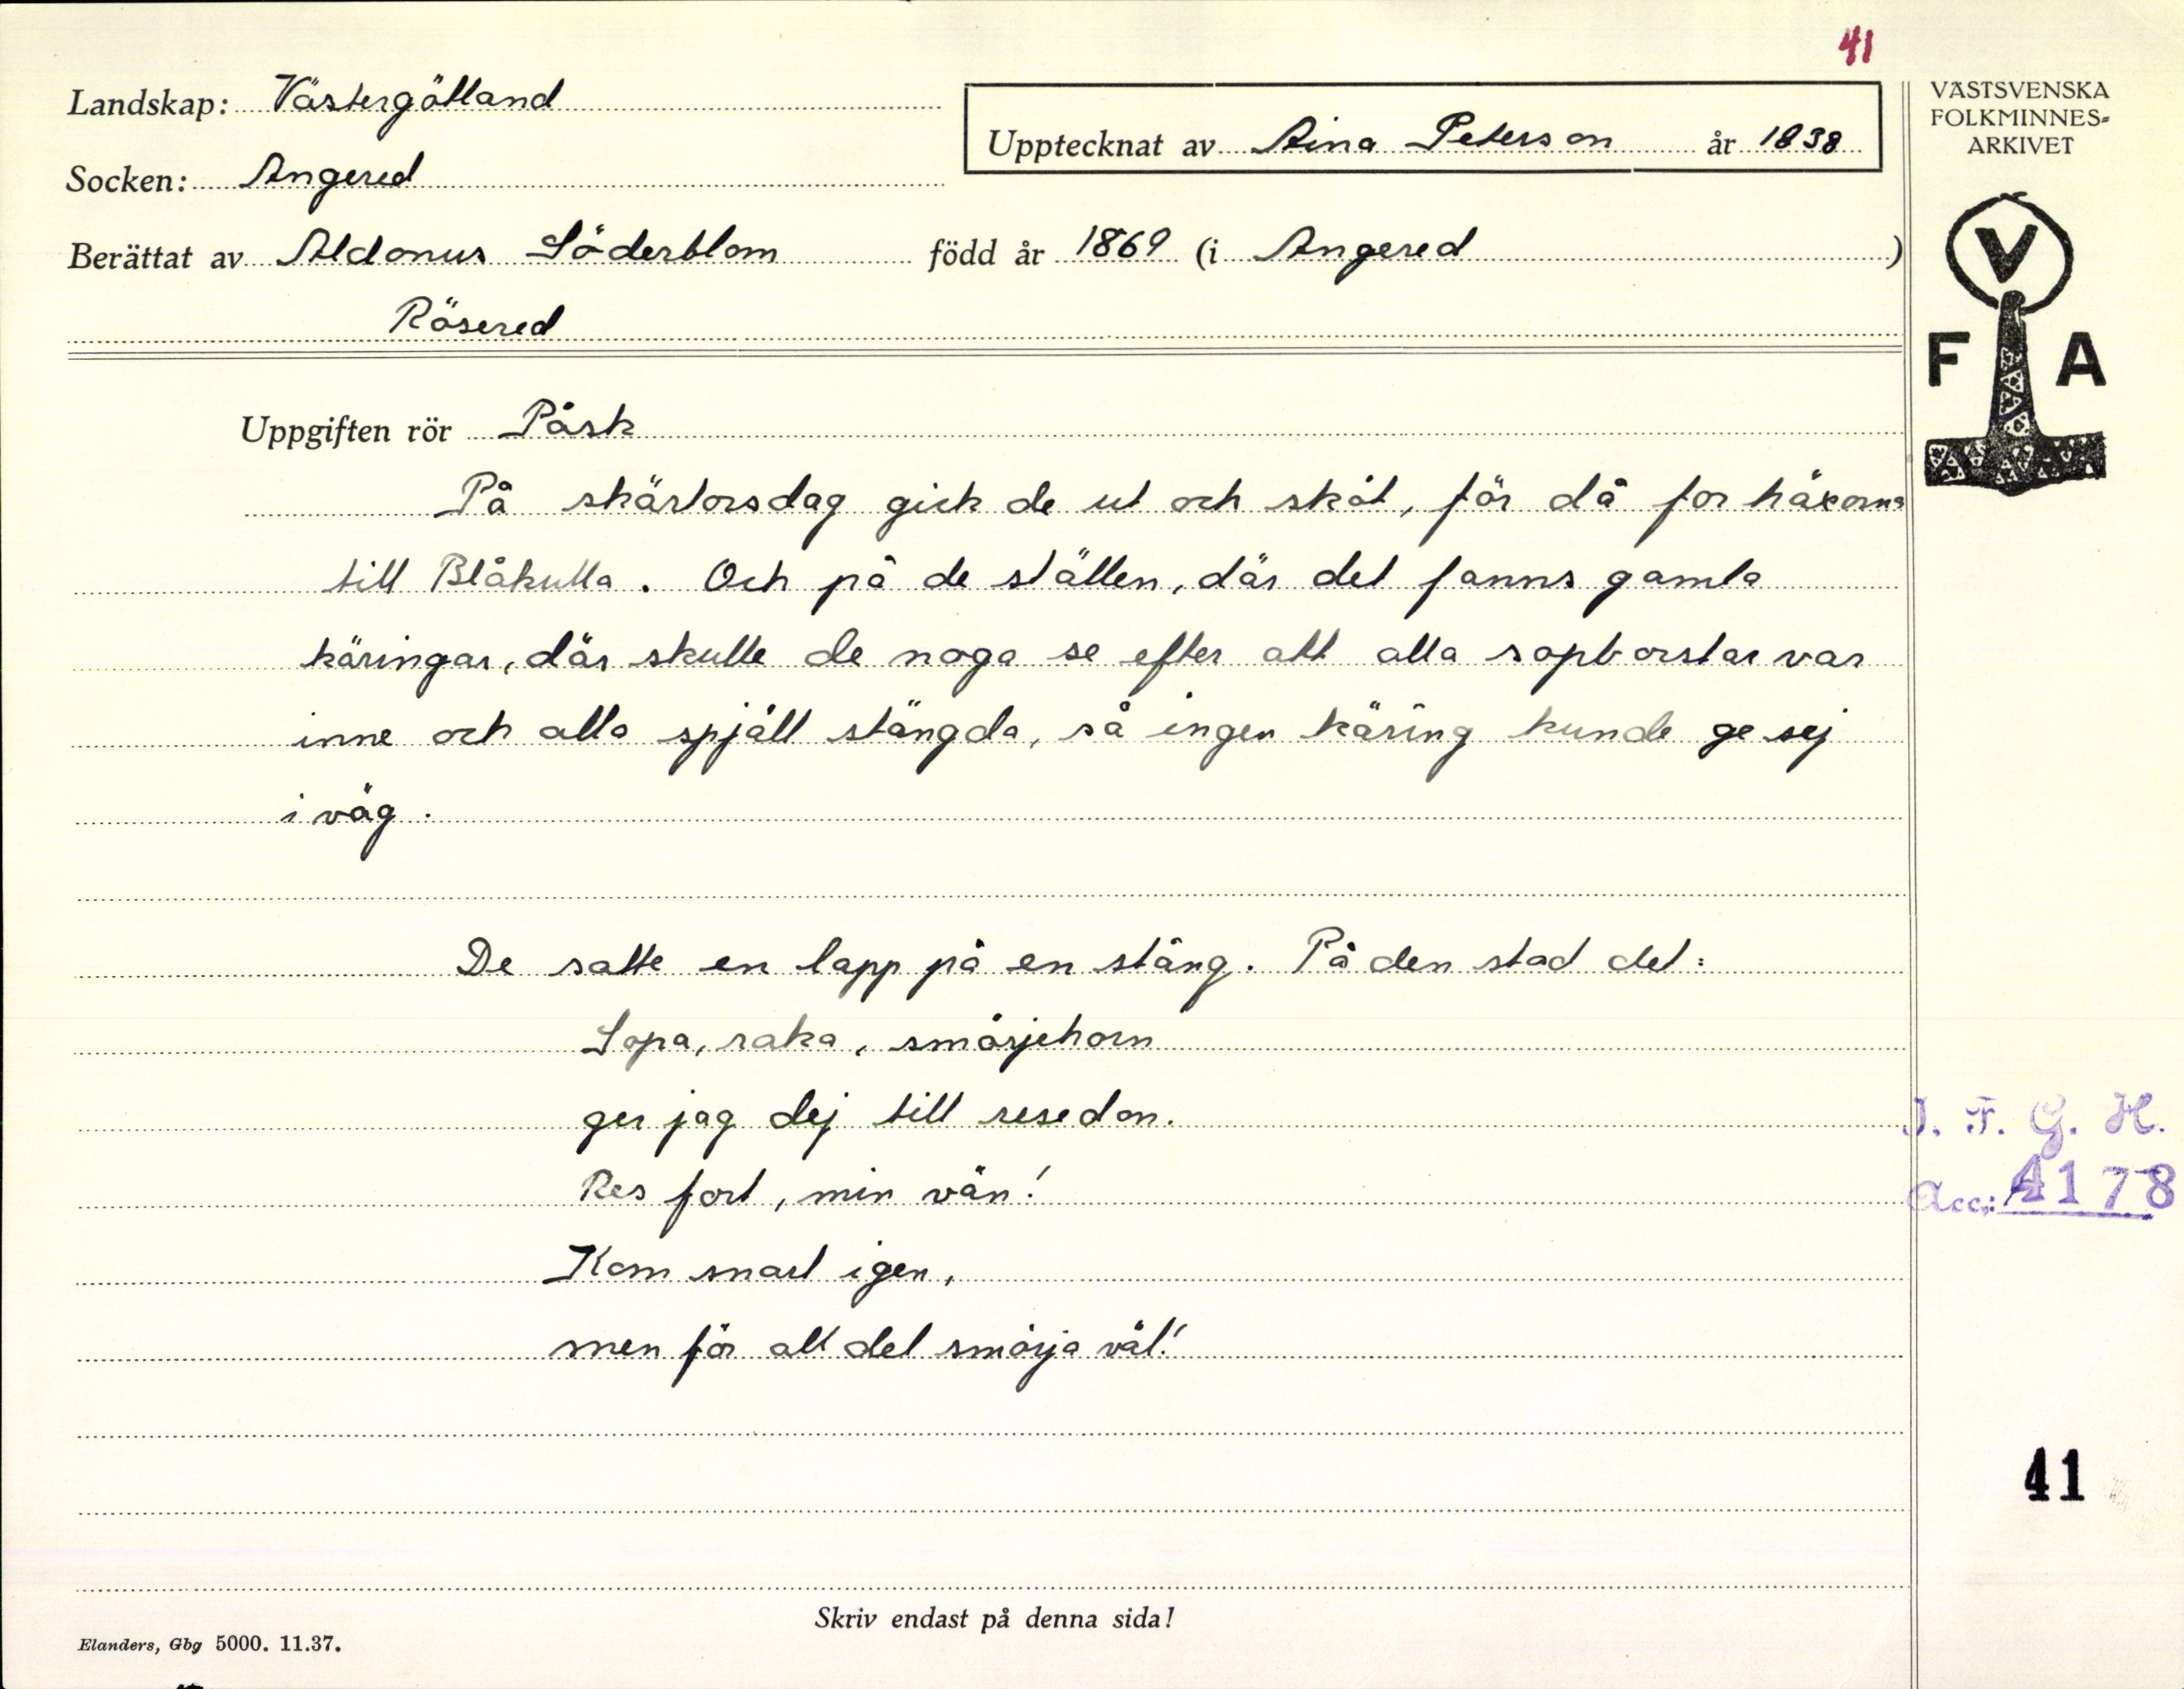 41
Landskap: Västergötland
Upptecknat av Aina Peterson år 1938
VÄSTSVENSKA
FOLKMINNES-
ARKIVET
Socken: Angered
Berättat av Aldonus Söderblom född år 1869 (i Angered)
Rösered
V
F A
Uppgiften rör Påsk
På skärtorsdag gick de ut och sköt, för då for häxorna
till Blåkulla. Och på de ställen, där det fanns gamla
käringar, där skulle de noga se efter att alla sopborstar var
inne och alla spjäll stängda, så ingen käring kunde ge sej
i väg.
De satte en lapp på en stång. På den stad det:
Sopa, raka, smörjehorn
ger jag dej till resedon.
Res fort, min vän!
Kom snart igen,
men för allt del smörja väl!
I. F. G. H.
Acc: 4178
41
Skriv endast på denna sida!
Elanders, Gbg 5000. 11.37.